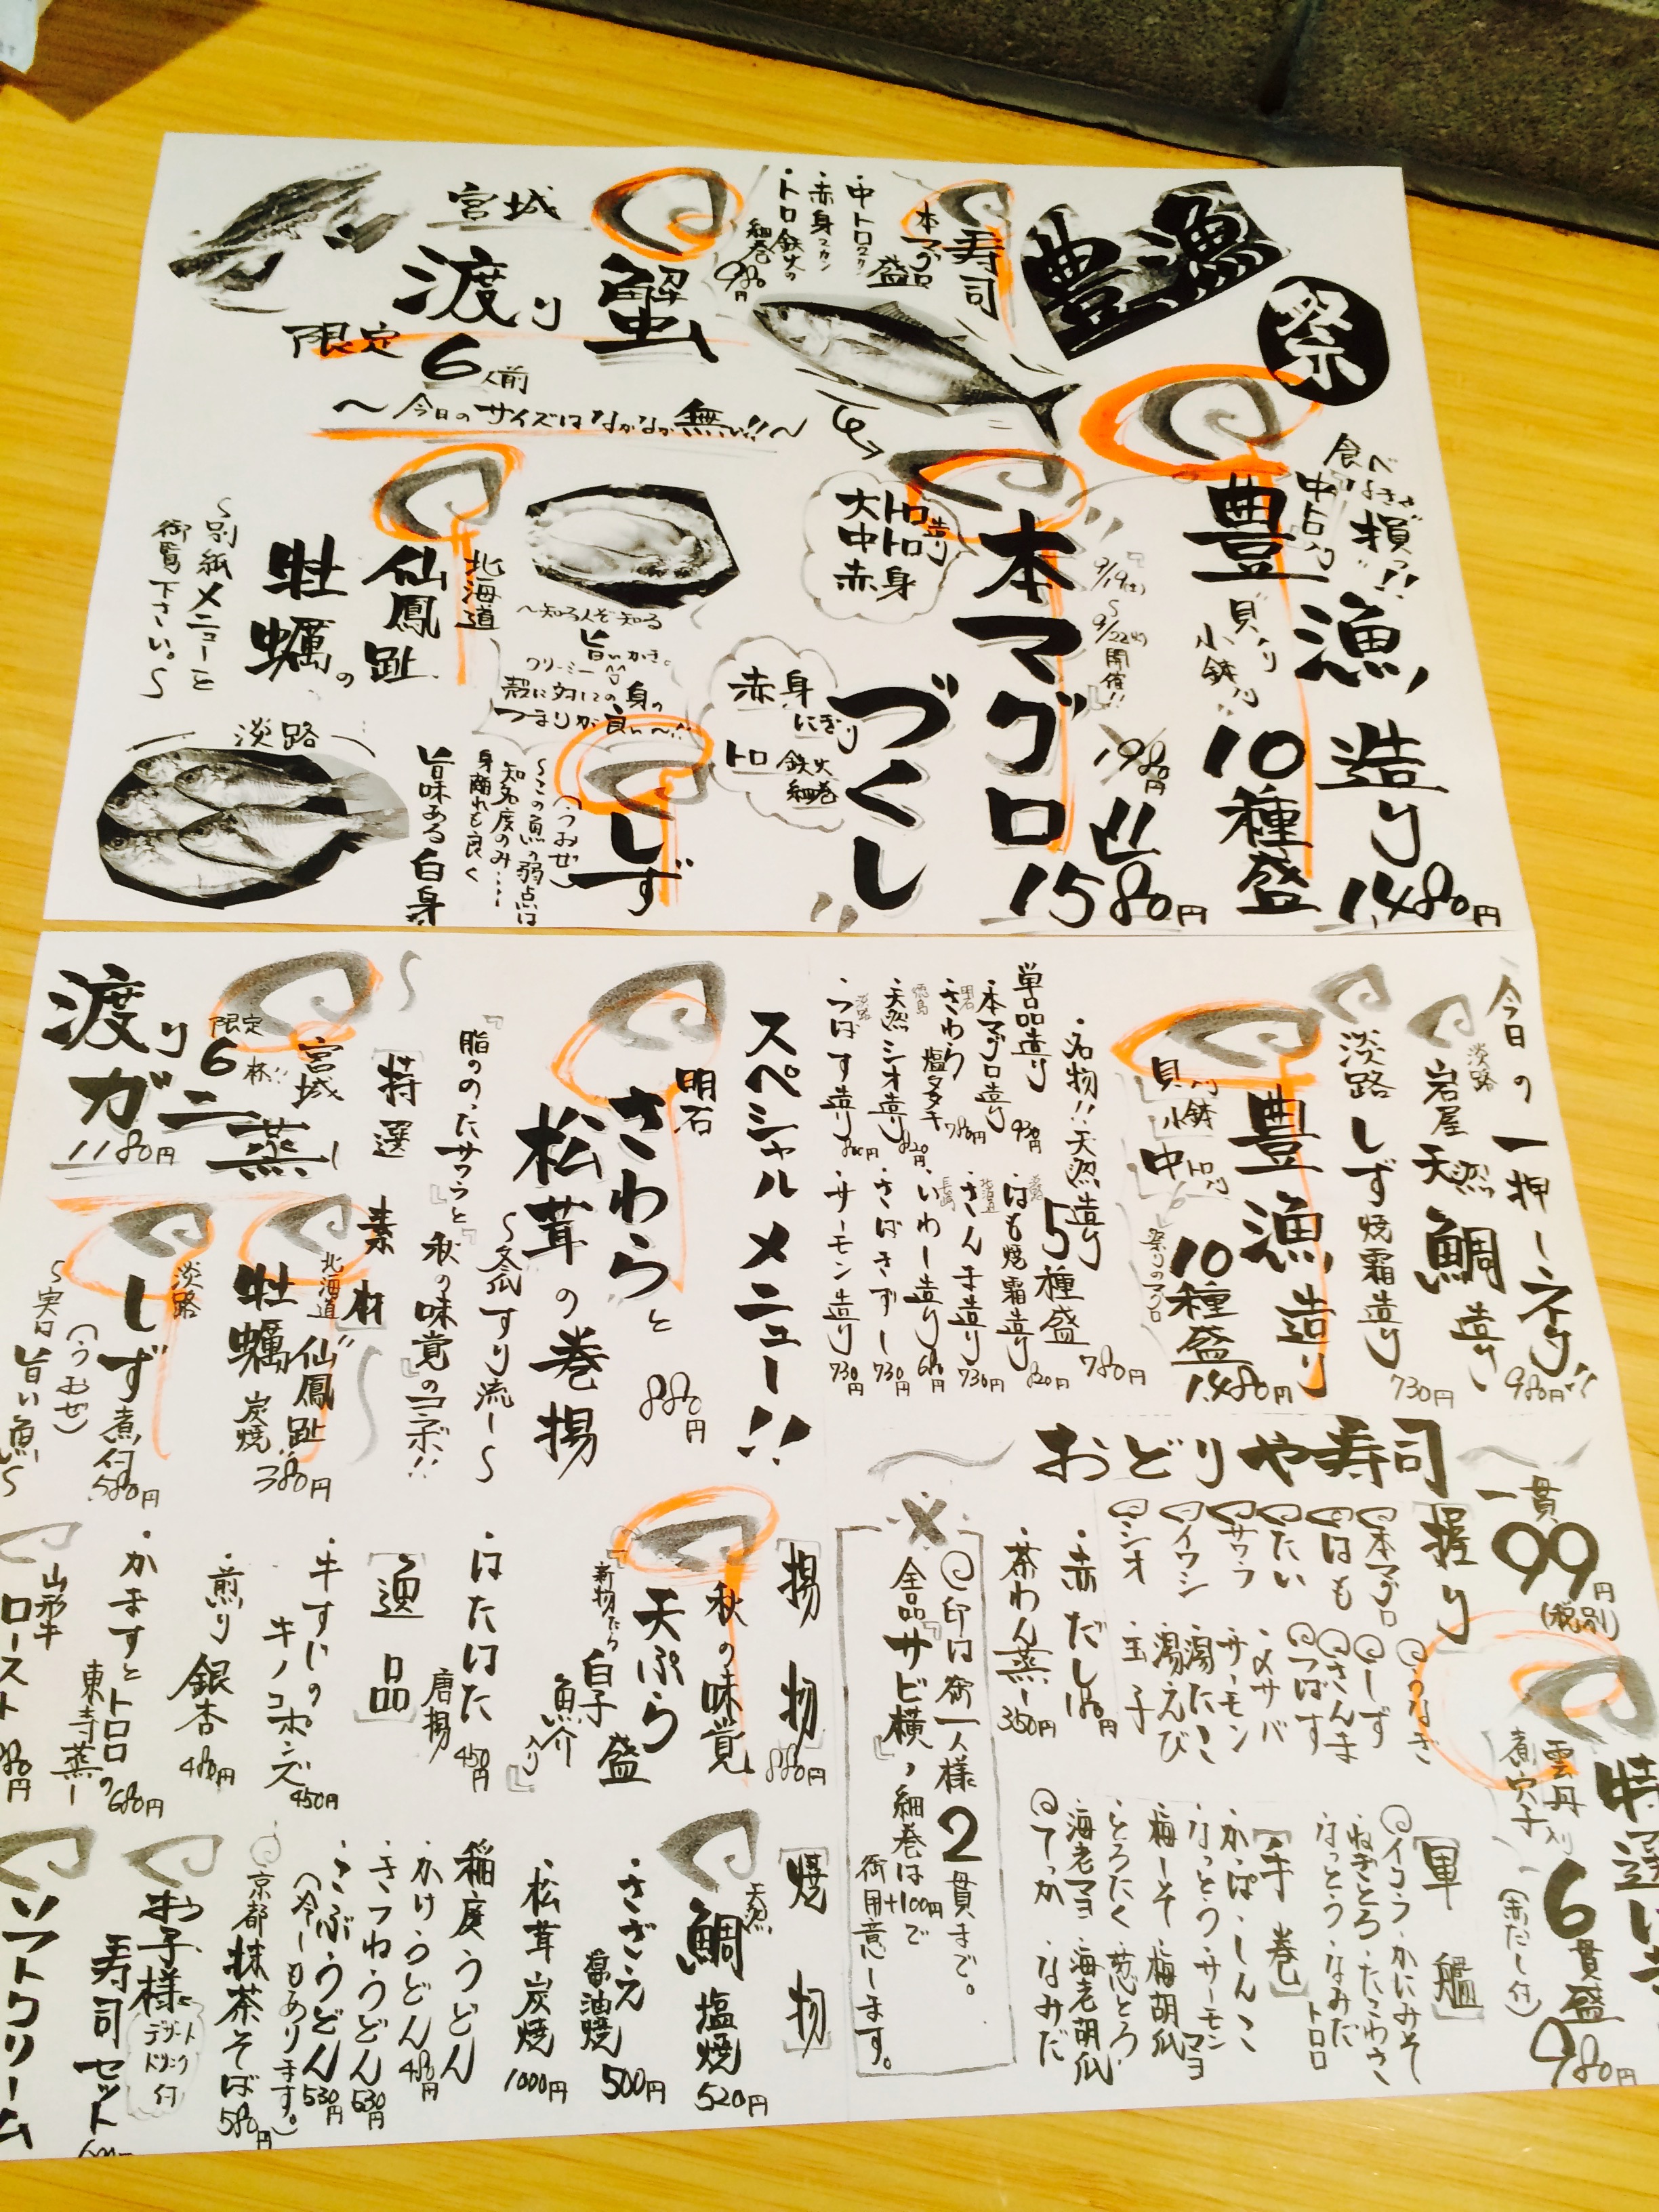 豊漁
祭
食べなきゃ損っ!!
豊漁造り
中トロ入り
貝入り
小鉢入り
10種盛
1,480円
9/19(土)〜9/22(火)開催!!
本マグロ
づくし
1980円
1580円
大トロ
中トロ
赤身
造り
赤身にぎり
トロ鉄火細巻
寿司
本マグロ盛
・中トロ2カン
・赤身2カン
・トロ鉄火の細巻
980円
宮城
渡り蟹
限定6人前
〜今日のサイズはなかなか無い!!〜
北海道
仙鳳趾の
牡蠣
〜知る人ぞ知る
旨いかき。
クリーミー
殻に対しての身の
つまりが良い〜!!
〜別紙メニューを
御覧下さい。〜
淡路
しず
(うおぜ)
〜この魚の弱点は
知名度のみ…
身離れも良く
旨味ある白身
今日の一押しネタ!!
淡路
岩屋 天然鯛造り
980円
淡路 しず焼霜造り
730円
豊漁造り
10種盛
1480円
貝入り
小鉢
中トロ入り
・名物!!天然造り5種盛
780円
単品造り
・本マグロ造り 930円
明石
・さわら塩タタキ 780円
徳島
・天然シオ造り 820円
淡路
・つばす造り
淡路
・はも焼霜造り 820円
北海道
・さんま造り 730円
長崎
・いわし造り 680円
・さばきずし 730円
・サーモン造り 730円
スペシャルメニュー!!
明石
さわらと
松茸の巻揚
880円
〜冬瓜すり流し〜
『脂ののったサワラ』と『秋の味覚』のコラボ!!
〜[特選素材]〜
宮城
渡りガニ蒸し
限定6杯!!
1180円
北海道
仙鳳趾
牡蠣 炭焼
380円
淡路
しず煮付
(うおぜ)
580円
〜実に旨い魚〜
〜おどりや寿司〜
一貫
99円
(税別)
[握り]
本マグロ
はも
たい
サワラ
イワシ
シオ
うなぎ
しず
さんま
つばす
・〆サバ
・サーモン
・湯たこ
・湯えび
・玉子
・赤だし
・茶わん蒸し 350円
特選に
雲丹入り
煮穴子
(赤だし付)
6貫盛
980円
[軍艦]
イクラ
・かにみそ
・ねぎとろ
・たこわさ
・なっとう
・なみだトロロ
[手巻]
・かっぱ
・しんこ
・なっとう
・サーモンマヨ
・梅しそ
・梅胡瓜
・とろたく
・葱とろ
・海老マヨ
・海老胡瓜
てっか
・なみだ
印は御一人様2貫まで。
全品『サビ横』、細巻は+100円で
御用意します。
[揚物]
秋の味覚
天ぷら盛
880円
白子
魚介
入り
・はたはた唐揚
450円
[逸品]
・牛すじのキノコポンズ
450円
・煎り銀杏
480円
・かますとトロロの東寺蒸し
680円
山形牛
ロースト
[焼物]
天然
鯛塩焼
520円
・さざえ醤油焼
500円
・松茸炭焼
1000円
稲庭うどん
・かけうどん 480円
・きつねうどん 530円
・こぶうどん 530円
(冷しもあります。)
京都抹茶そば
580円
お子様
寿司セット
デザート
ドリンク
付
ソフトクリーム